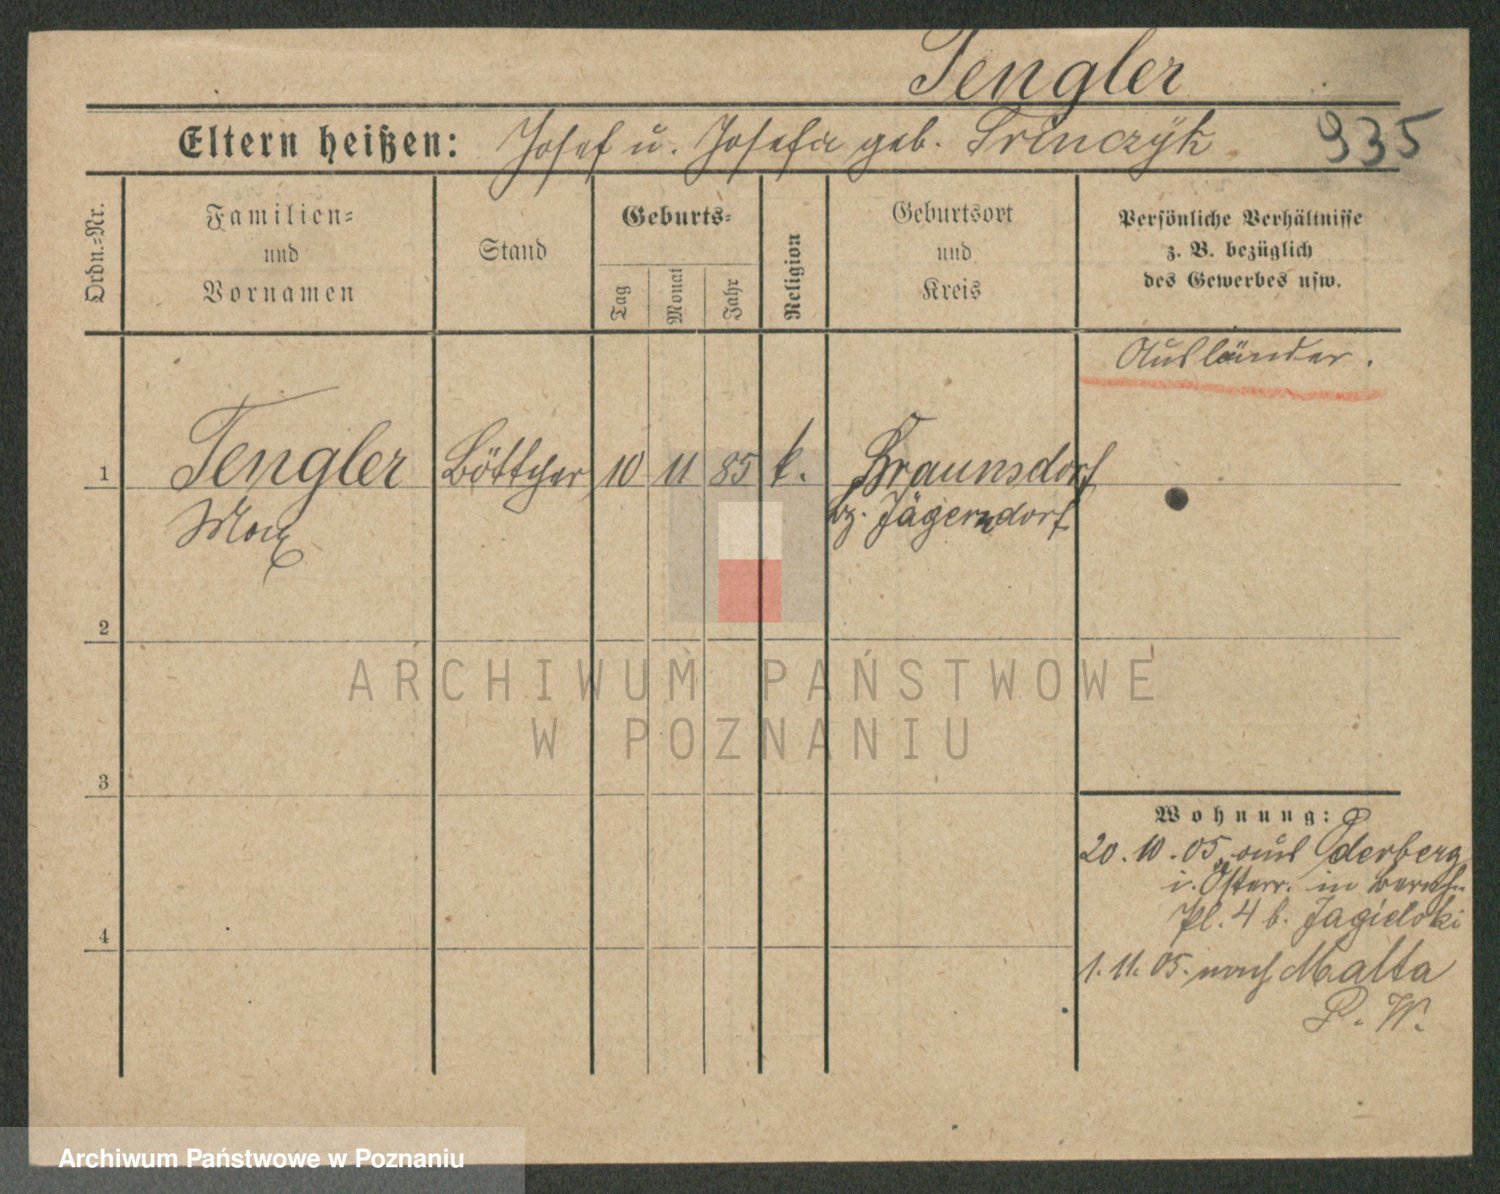 Tengler
Eltern heißen: Josef u. Josefa geb. Trinczyk 935
Ordn.-Nr.
Familien-
und
Vornamen
Stand
Geburts-
Tag
Monat
Jahr
Religion
Geburtsort
und
Kreis
Persönliche Verhältnisse
z. B. bezüglich
des Gewerbes usw.
Ausländer.
1 Tengler Böttcher 10 11 85 k. Braunsdorf
Max bz. Jägerndorf
2
3
4
Wohnung:
20.10.05. aus Oderberg
i. Österr. in Bernh.
Pl. 4 b. Jagielski
1.11.05. nach Malta
P. W.
ARCHIWUM PAŃSTWOWE
W POZNANIU
Archiwum Państwowe w Poznaniu